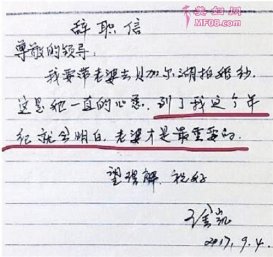 美妇网
MF08.com
辞职信
尊敬的领导:
我要带老婆去贝加尔湖拍婚纱,
这是她一直的心愿。到了我这个年
纪就会明白,老婆才是最重要的。
望理解,祝好
2017.9.4.